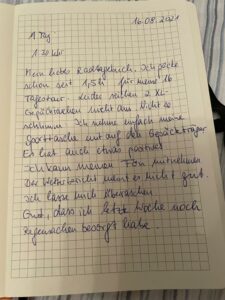 16.08.2021
1. Tag
1:30 Uhr
Mein liebes Radtagebuch. Ich packe
schon seit 1,5h für meine 16
Tagestour. Leider sieben 2 XL-
Gepäcktaschen nicht aus. Nicht so
schlimm. Ich nehme einfach meine
Sporttasche mit auf den Gepäckträger
Es hat auch etwas positives
Ich kann meinen Fön mitnehmen
Der Wetterbericht meint es nicht gut.
Ich lasse mich überraschen
Gut, dass ich letzte Woche noch
Regensachen besorgt habe.